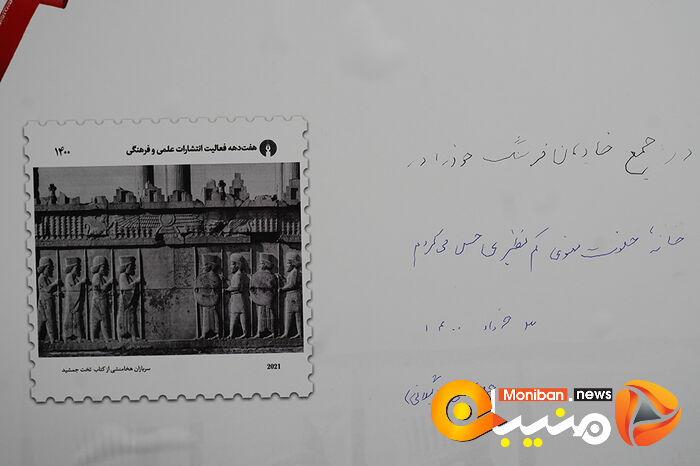 هفت‌دهه فعالیت انتشارات علمی و فرهنگی
۱۴۰۰
سربازان هخامنشی از کتاب تخت جمشید
2021
در جمع خادمان فرهنگ خود را در
خانه خلوت معنوی کم نظیری حس می‌کردم
۳ خرداد ۱۴۰۰
گیلانی)
Moniban.news
منیبان